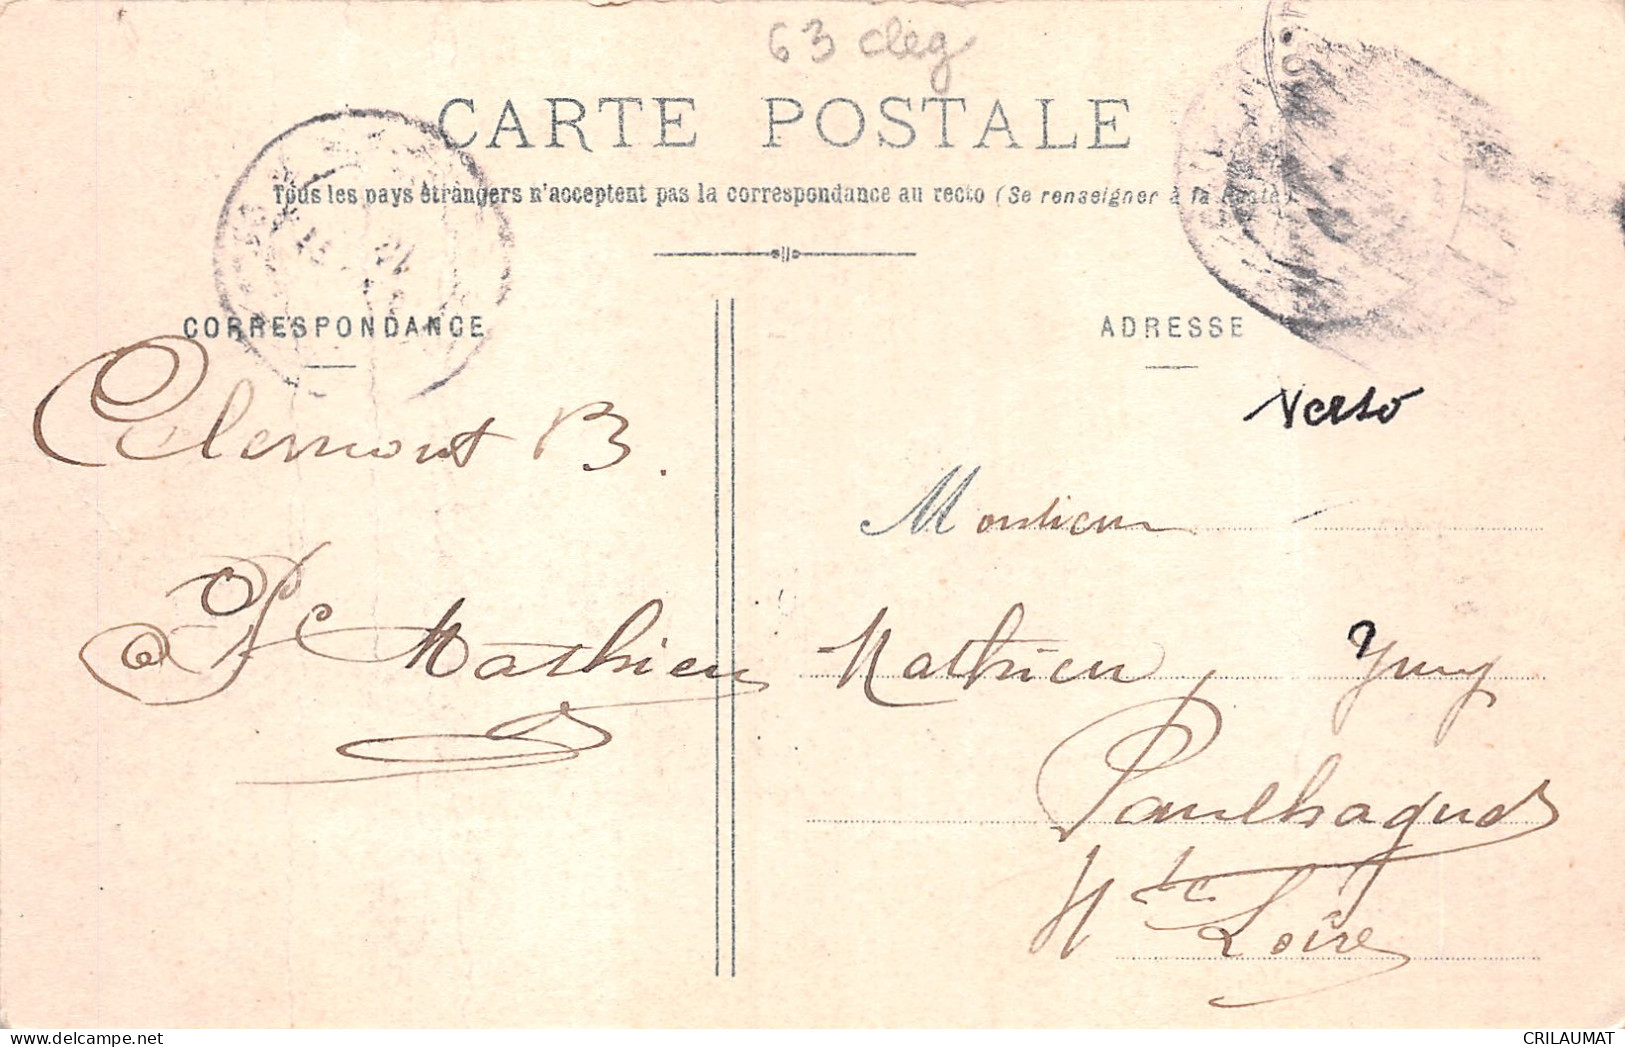 63 cleg
CARTE POSTALE
Tous les pays étrangers n'acceptent pas la correspondance au recto (Se renseigner à la Poste)
CORRESPONDANCE
ADRESSE
Verso
Clermont B.
Monsieur
Mathieu
Mathieu
Paulhaguet
Hte Loire
CRILAUMAT